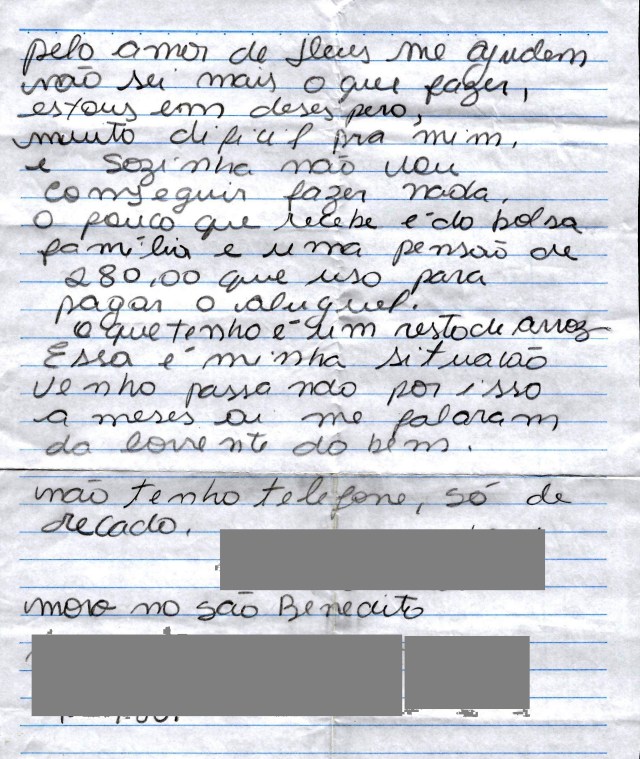 pelo amor de Deus me ajudem
não sei mais o que fazer,
estous em deses pero,
muuto dificil pra mim.
e sozinha não vou
comseguir fazer nada.
O pouco que recebe é do bolsa
família e uma pensão de
280,00 que uso para
pagar o aluguel.
o que tenho é um resto de arroz
Essa é minha situacão
venho passa ndo por isso
a meses ai me falaram
da corrente do bem.
não tenho telefone, só de
recado.
moro no são Benedito